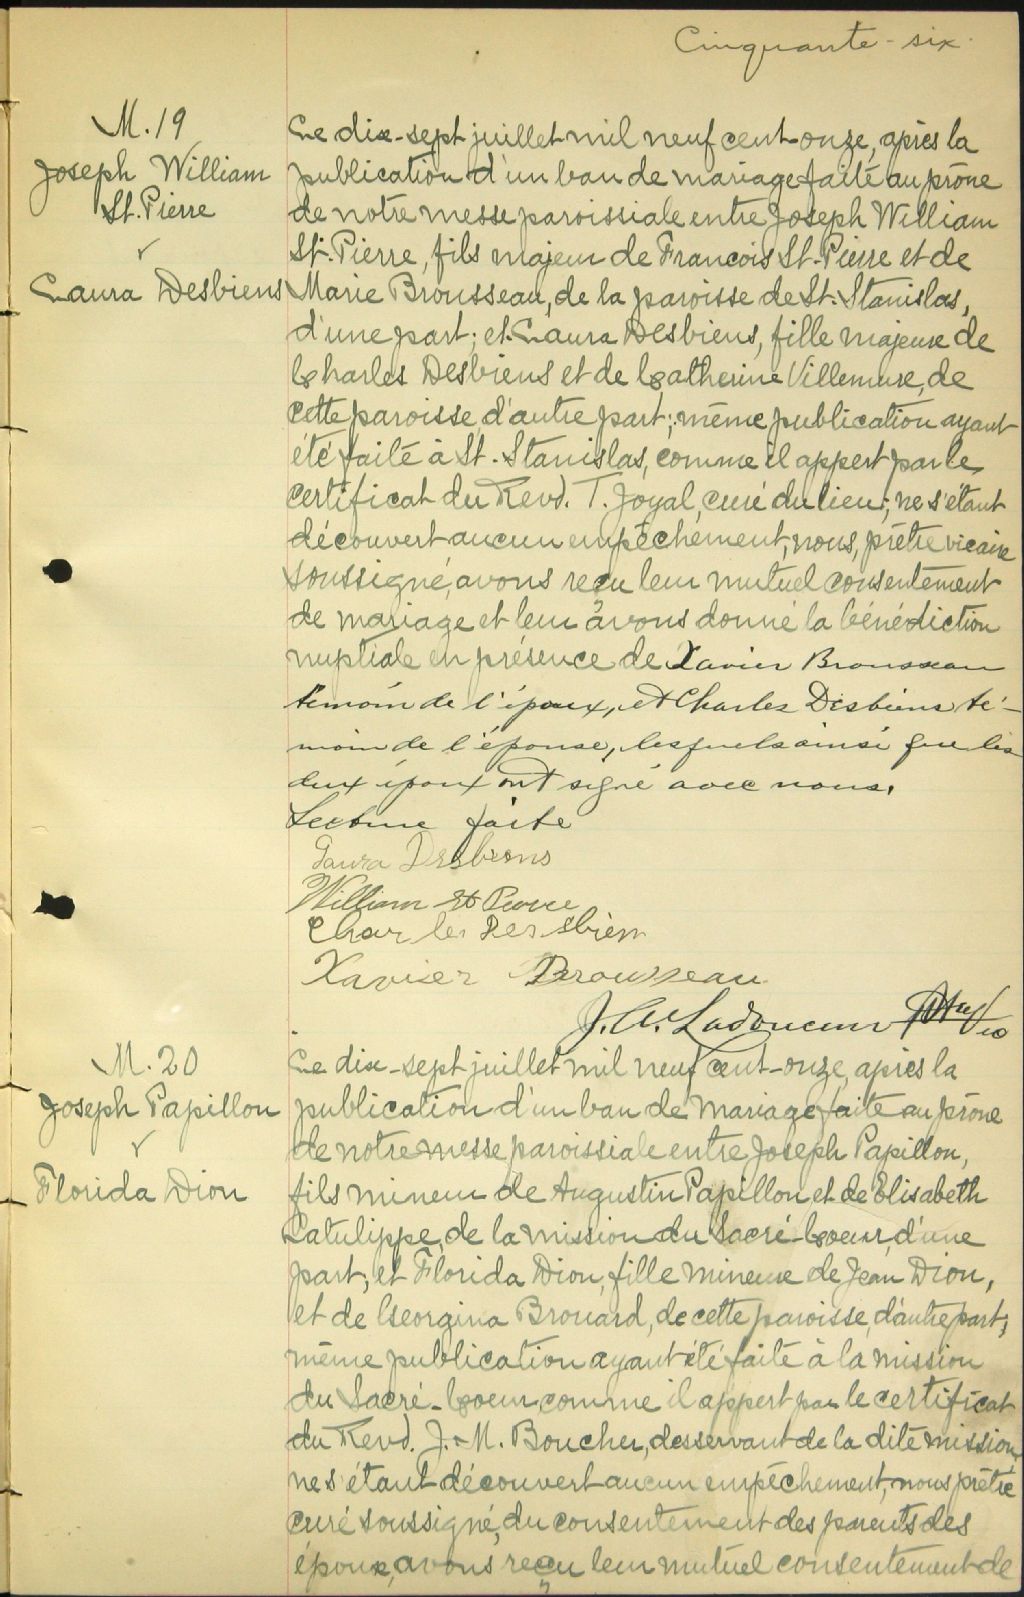 Cinquante-six
M. 19
Joseph William
St. Pierre
Laura Desbiens
Le dix-sept juillet mil neuf cent-onze, après la
publication d'un ban de mariage faite au prône
de notre messe paroissiale entre Joseph William
St. Pierre, fils majeur de François St. Pierre et de
Marie Brousseau, de la paroisse de St. Stanislas,
d'une part; et Laura Desbiens, fille majeure de
Charles Desbiens et de Catherine Villemure, de
cette paroisse, d'autre part; même publication ayant
été faite à St. Stanislas, comme il appert par le
certificat du Revd. T. Joyal, curé du lieu; ne s'étant
découvert aucun empêchement, nous, prêtre vicaire
soussigné, avons reçu leur mutuel consentement
de mariage et leur avons donné la bénédiction
nuptiale en présence de Xavier Brousseau
témoin de l'époux, et Charles Desbiens té-
moin de l'épouse, lesquels ainsi que les
deux époux ont signé avec nous.
Lecture faite
Laura Desbiens
William St Pierre
Charles Desbiens
Xavier Brousseau
J. A. Ladouceur Ptre Vic
M. 20
Joseph Papillon
Florida Dion
Le dix-sept juillet mil neuf cent-onze, après la
publication d'un ban de mariage faite au prône
de notre messe paroissiale entre Joseph Papillon,
fils mineur de Augustin Papillon et de Elisabeth
Latulippe, de la mission du Sacré-Coeur, d'une
part, et Florida Dion, fille mineure de Jean Dion,
et de Georgina Brouard, de cette paroisse, d'autre part;
même publication ayant été faite à la mission
du Sacré-Coeur, comme il appert par le certificat
du Revd. J.-M. Boucher, desservant de la dite mission,
ne s'étant découvert aucun empêchement, nous prêtre
curé soussigné, du consentement des parents des
époux, avons reçu leur mutuel consentement de